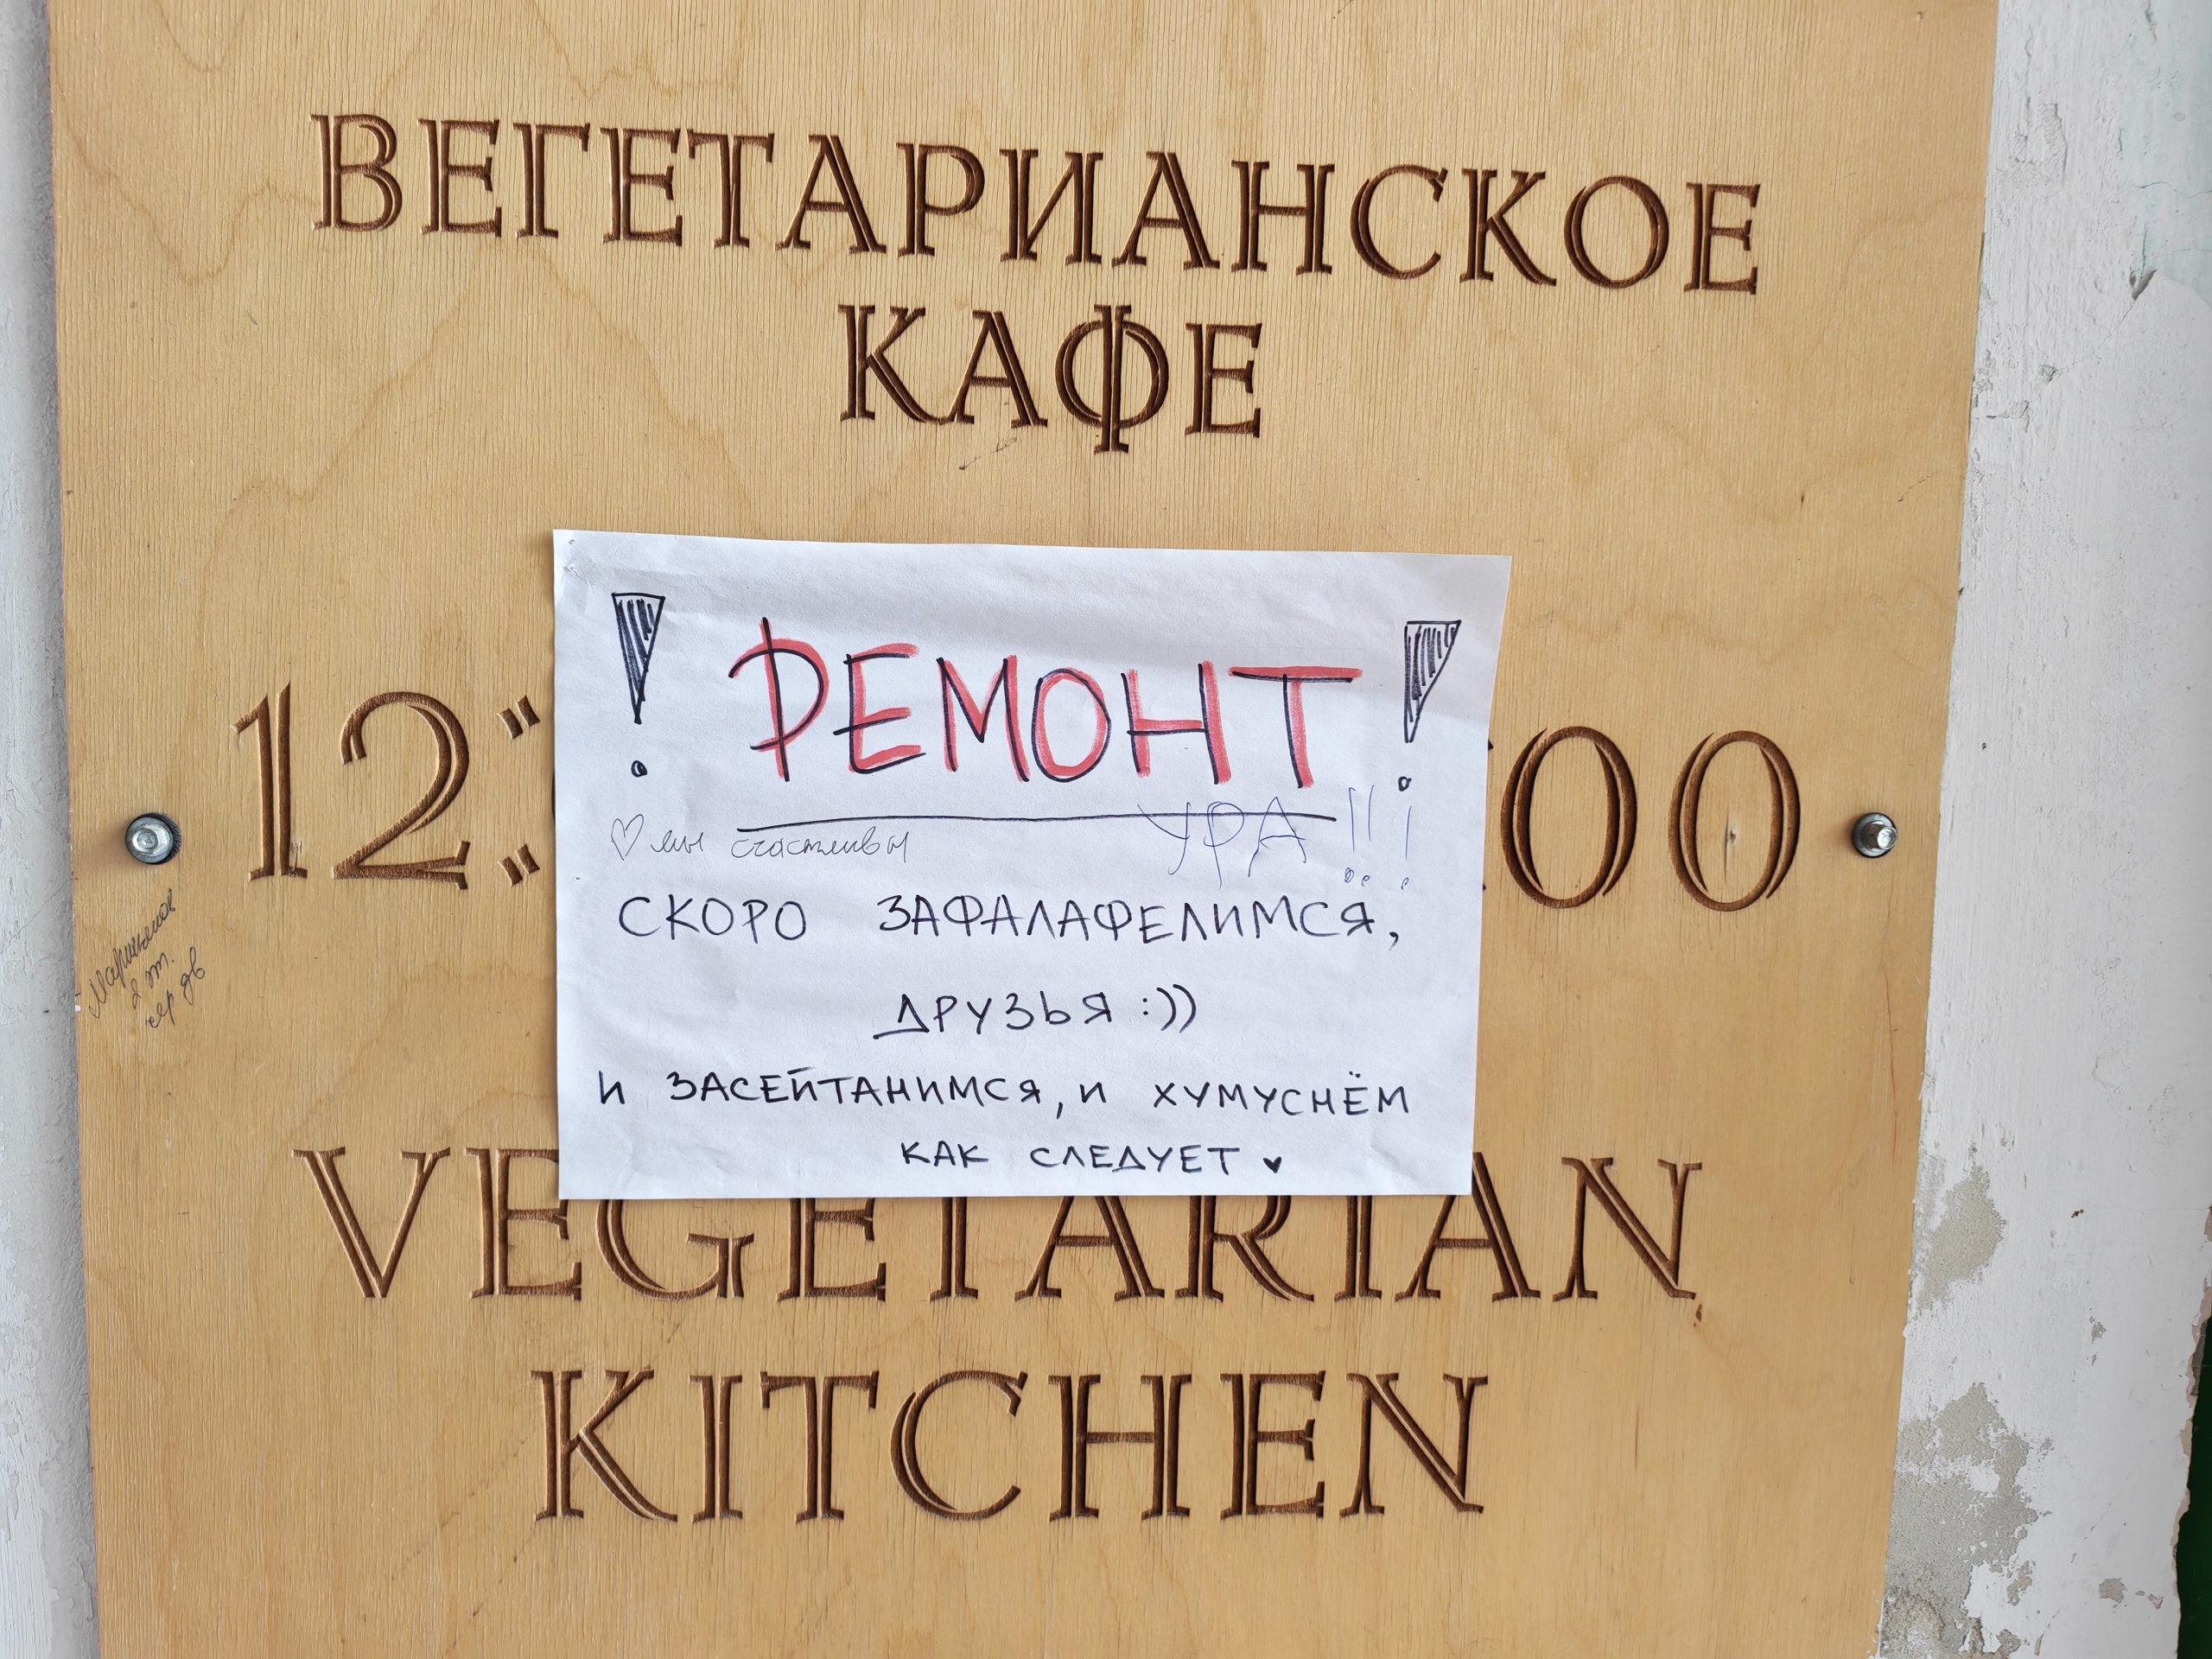 ВЕГЕТАРИАНСКОЕ
КАФЕ
12: 00
! РЕМОНТ !
♡ мы счастливы УРА !!!
СКОРО ЗАФАЛАФЕЛИМСЯ,
ДРУЗЬЯ :))
И ЗАСЕЙТАНИМСЯ, И ХУМУСНЁМ
КАК СЛЕДУЕТ ♥
VEGETARIAN
KITCHEN